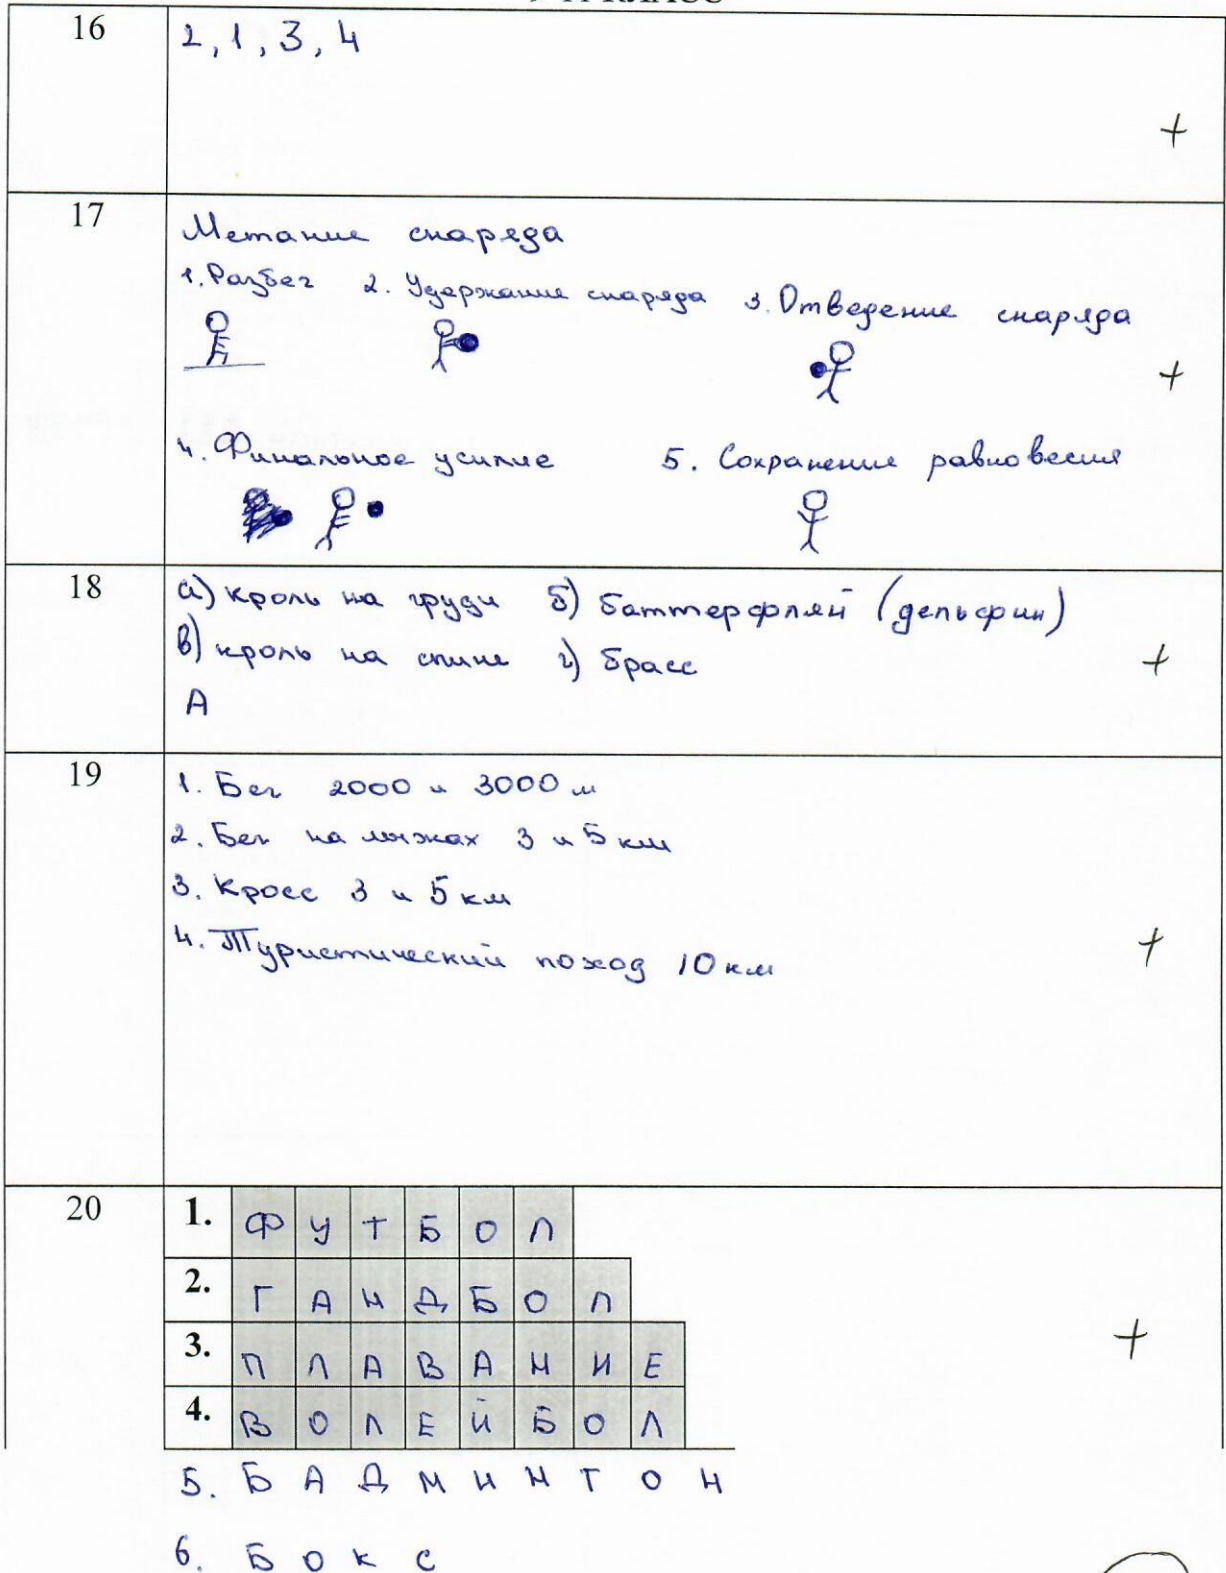 КЛАСС
16
2, 1, 3, 4
+
17
Метание снаряда
1. Разбег 2. Удержание снаряда 3. Отведение снаряда
+
4. Финальное усилие 5. Сохранение равновесия
18
а) кроль на груди б) баттерфляй (дельфин)
в) кроль на спине г) брасс
+
А
19
1. Бег 2000 и 3000 м
2. Бег на лыжах 3 и 5 км
3. Кросс 3 и 5 км
4. Туристический поход 10 км
+
20
1. ФУТБОЛ
2. ГАНДБОЛ
3. ПЛАВАНИЕ
+
4. ВОЛЕЙБОЛ
5. БАДМИНТОН
6. БОКС